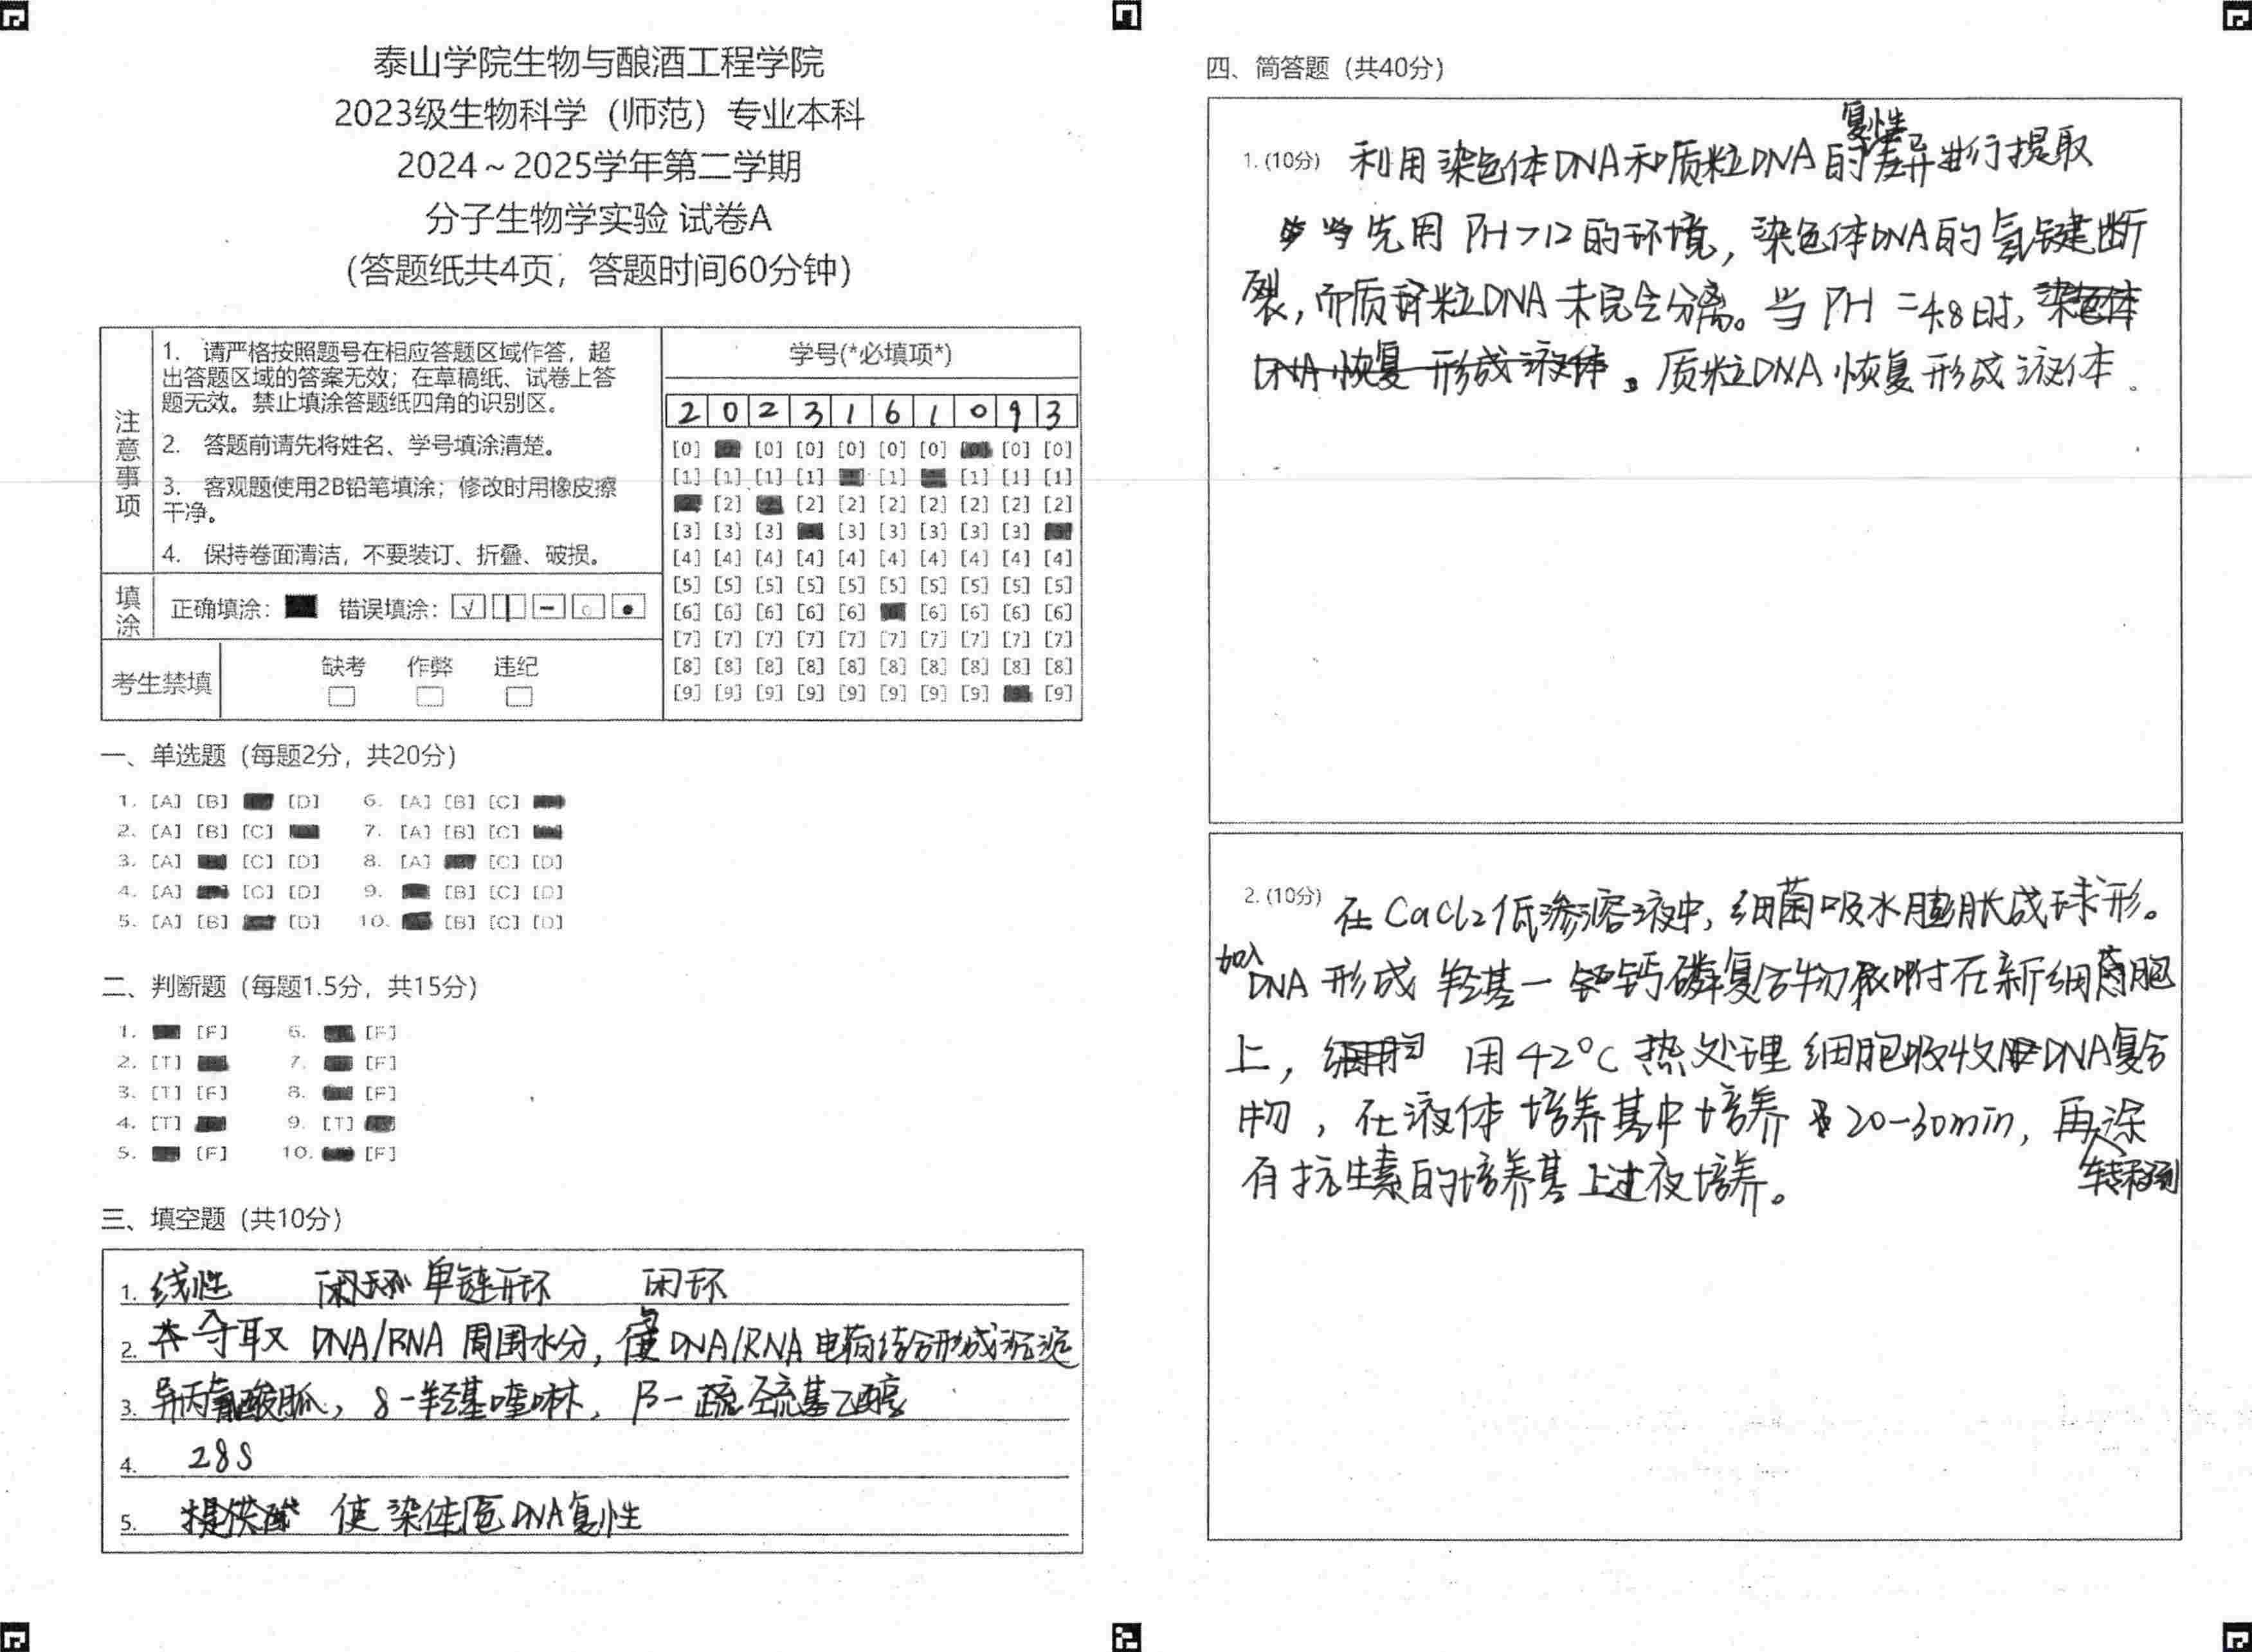 泰山学院生物与酿酒工程学院
2023级生物科学（师范）专业本科
2024～2025学年第二学期
分子生物学实验 试卷A
（答题纸共4页，答题时间60分钟）
注意事项
1. 请严格按照题号在相应答题区域作答，超
出答题区域的答案无效；在草稿纸、试卷上答
题无效。禁止填涂答题纸四角的识别区。
2. 答题前请先将姓名、学号填涂清楚。
3. 客观题使用2B铅笔填涂；修改时用橡皮擦
干净。
4. 保持卷面清洁，不要装订、折叠、破损。
填涂
正确填涂： 错误填涂：
考生禁填
缺考 作弊 违纪
学号(*必填项*)
2 0 2 3 1 6 1 0 9 3
[0] [0] [0] [0] [0] [0] [0] [0]
[1] [1] [1] [1] [1] [1] [1] [1]
[2] [2] [2] [2] [2] [2] [2] [2]
[3] [3] [3] [3] [3] [3] [3] [3]
[4] [4] [4] [4] [4] [4] [4] [4] [4] [4]
[5] [5] [5] [5] [5] [5] [5] [5] [5] [5]
[6] [6] [6] [6] [6] [6] [6] [6] [6]
[7] [7] [7] [7] [7] [7] [7] [7] [7] [7]
[8] [8] [8] [8] [8] [8] [8] [8] [8] [8]
[9] [9] [9] [9] [9] [9] [9] [9] [9]
一、单选题（每题2分，共20分）
1. [A] [B] [D] 6. [A] [B] [C]
2. [A] [B] [C] 7. [A] [B] [C]
3. [A] [C] [D] 8. [A] [C] [D]
4. [A] [C] [D] 9. [B] [C] [D]
5. [A] [B] [D] 10. [B] [C] [D]
二、判断题（每题1.5分，共15分）
1. [F] 6. [F]
2. [T] 7. [F]
3. [T] [F] 8. [F]
4. [T] 9. [T]
5. [F] 10. [F]
三、填空题（共10分）
1. 线性 单链开环 闭环
2. 夺取 DNA/RNA 周围水分，DNA/RNA 电荷结合形成沉淀
3. 异丙氰酸胍，8-羟基喹啉，β-巯基乙醇
4. 28S
5. 使染体色DNA复性
四、简答题（共40分）
1. (10分) 利用染色体DNA和质粒DNA的复性差异进行提取
先用 PH>12的环境，染色体DNA的氢键断
裂，而质粒DNA未完全分离。当 PH =4.8时，
质粒DNA恢复形成液体。
2. (10分) 在CaCl2低渗溶液中，细菌吸水膨胀成球形。
加入DNA 形成 羟基-钙磷复合物 附在新细胞
上， 用42°C热处理 细胞吸收DNA复合
物，在液体培养基中培养 20-30min，再转移到
有抗生素的培养基上过夜培养。